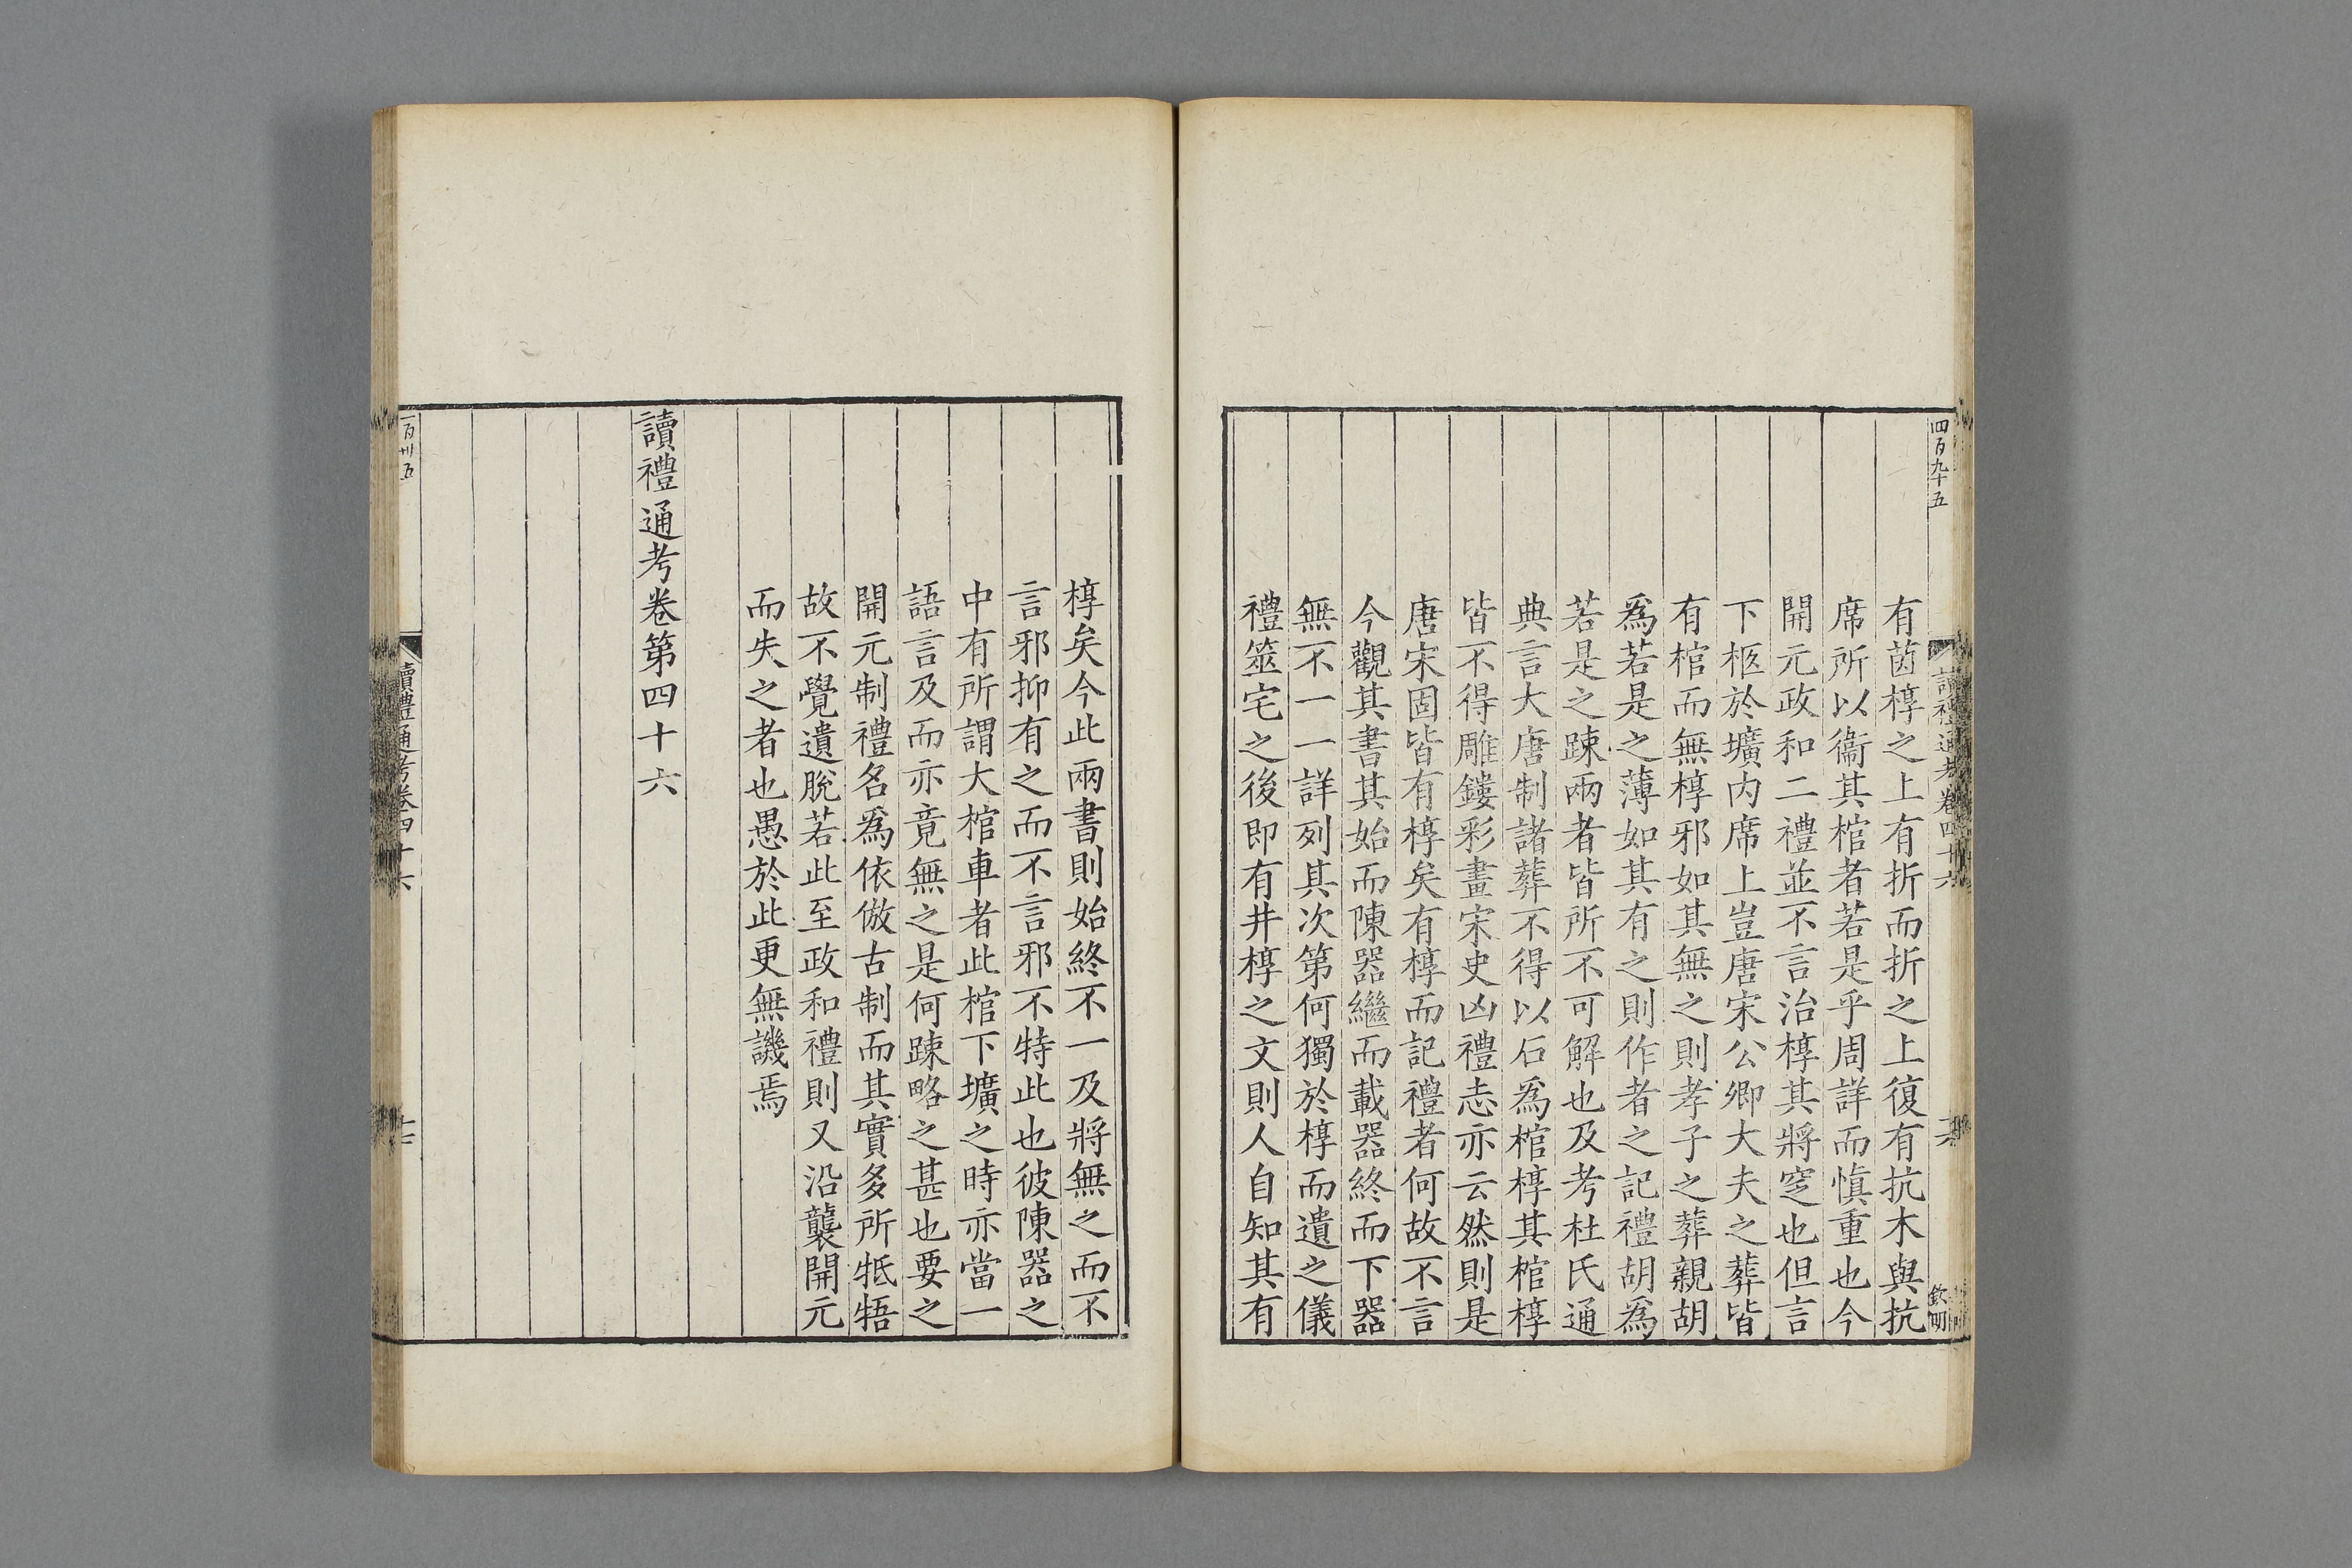 四百九十五
讀禮通考卷四十六
欽明
有茵椁之上有折而折之上復有抗木與抗
席所以衞其棺者若是乎周詳而愼重也今
開元政和二禮並不言治椁其將窆也但言
下柩於壙内席上豈唐宋公卿大夫之葬皆
有棺而無椁邪如其無之則孝子之葬親胡
爲若是之薄如其有之則作者之記禮胡爲
若是之踈兩者皆所不可解也及考杜氏通
典言大唐制諸葬不得以石爲棺椁其棺椁
皆不得雕鏤彩畫宋史凶禮志亦云然則是
唐宋固皆有椁矣有椁而記禮者何故不言
今觀其書其始而陳器繼而載器終而下器
無不一一詳列其次第何獨於椁而遺之儀
禮筮宅之後即有井椁之文則人自知其有
椁矣今此兩書則始終不一及將無之而不
言邪抑有之而不言邪不特此也彼陳器之
中有所謂大棺車者此棺下壙之時亦當一
語言及而亦竟無之是何踈略之甚也要之
開元制禮名爲依倣古制而其實多所牴牾
故不覺遺脫若此至政和禮則又沿襲開元
而失之者也愚於此更無譏焉
讀禮通考卷第四十六
一百卅五
讀禮通考卷四十六